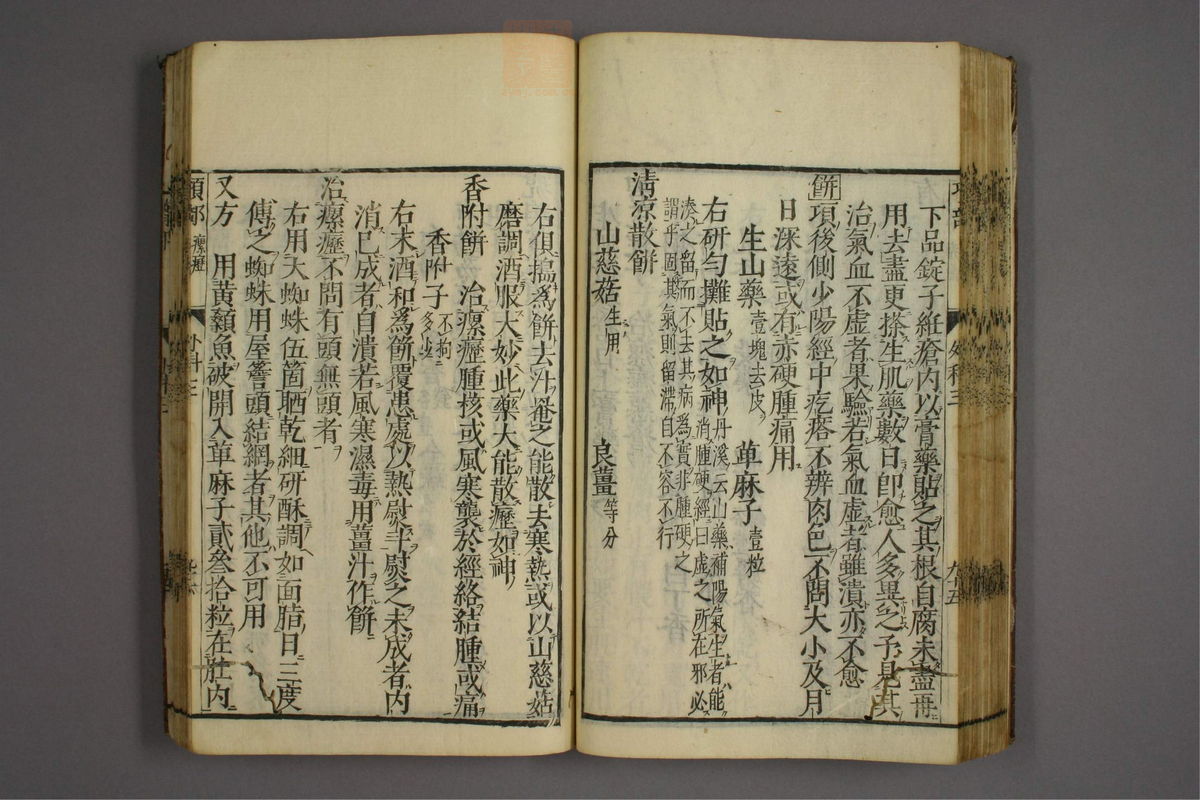 下品錠子紝瘡內以膏藥貼之其根自腐未盡再
用去盡更搽生肌藥數日即愈人多異之予見其
治氣血不虛者果驗若氣血虛者雖潰亦不愈
餅 項後側少陽經中疙瘩不辨肉色不問大小及月
日深遠或有赤硬腫痛用
生山藥 壹塊去皮 萆麻子 壹粒
右研勻攤貼之如神 丹溪云山藥補陽氣生者能
消腫硬經曰虛之所在邪必
湊之留而不去其病為實非腫硬之
謂乎固其氣則留滯自不容不行
清凉散餅
山慈菇 生用 良薑 等分
右俱搗為餅去汁䓊之能散去寒熱或以山慈菇
磨調酒服大妙此藥大能散癧如神
香附餅 治瘰癧腫核或風寒襲於經絡結腫或痛
香附子 不拘多少
右末酒和為餅覆患處以熱熨斗熨之未成者內
消已成者自潰若風寒濕毒用薑汁作餅
治瘰癧不問有頭無頭者
右用大蜘蛛伍箇晒乾細研酥調如面脂日三度
傅之蜘蛛用屋簷頭結網者其他不可用
又方 用黃顙魚破開入萆麻子貳叁拾粒在肚內
項部 瘰癧 外科三